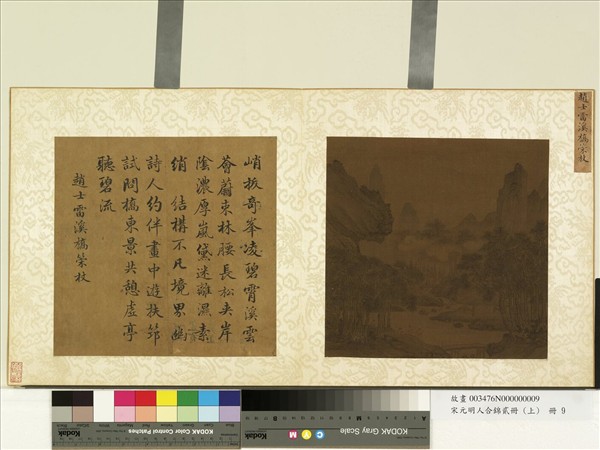 趙士雷溪橋策杖
峭拔奇峯凌碧霄溪雲
薈蔚束林腰長松夾岸
陰濃厚嵐黛迷離濕素
綃 結構不凡境界幽
詩人約伴畫中遊扶筇
試問橋東景共憩虛亭
聽碧流
趙士雷溪橋策杖
故畫 003476N000000009
宋元明人合錦貳冊（上） 冊 9
Kodak
KODAK Color Control Patches
Kodak
KODAK Gray Scale
C Y M